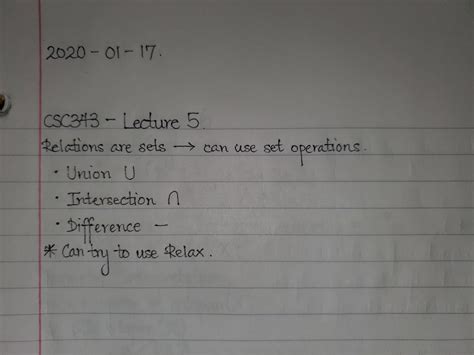 2020-01-17.
CSC343 - Lecture 5.
Relations are sets → can use set operations.
• Union ∪
• Intersection ∩
• Difference −
* Can try to use Relax.